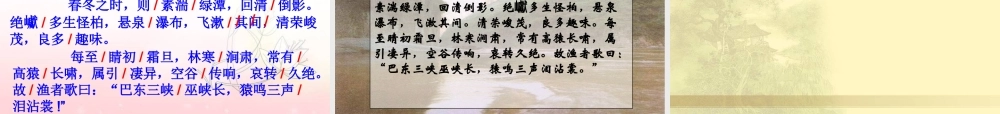 春冬之时，则/素湍/绿潭，回清/倒影。
绝巘/多生怪柏，悬泉/瀑布，飞漱/其间，清荣峻
茂，良多/趣味。
每至/晴初/霜旦，林寒/涧肃，常有/
高猿/长啸，属引/凄异，空谷/传响，哀转/久绝。
故/渔者歌曰：“巴东三峡/巫峡长，猿鸣三声/
泪沾裳！”
素湍绿潭，回清倒影。绝巘多生怪柏，悬泉
瀑布，飞漱其间。清荣峻茂，良多趣味。每
至晴初霜旦，林寒涧肃，常有高猿长啸，属
引凄异，空谷传响，哀转久绝。故渔者歌曰：
“巴东三峡巫峡长，猿鸣三声泪沾裳。”